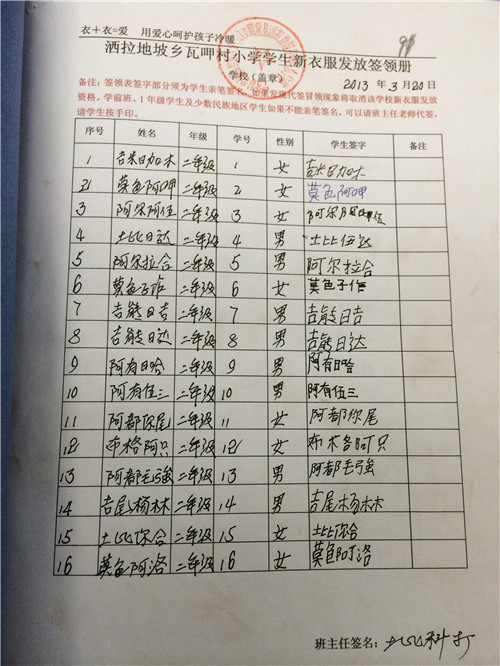 衣+衣=爱 用爱心呵护孩子冷暖
洒拉地坡乡瓦呷村小学学生新衣服发放签领册
学校（盖章）
2013年3月20日
备注：签领表签字部分须为学生亲笔签名，如果发现代签冒领现象将取消该学校新衣服发放
资格。学前班、1年级学生及少数民族地区学生如果不能亲笔签名，可以请班主任老师代签，
请学生按手印。
序号 姓名 年级 学号 性别 学生签字 备注
1 吉米日加木 二年级 1 女 吉米日加木
2 莫色阿呷 二年级 2 女 莫色阿呷
3 阿尔阿伍 二年级 3 女 阿尔
4 土比日达 二年级 4 男 土比伍达
5 阿尔拉合 二年级 5 男 阿尔拉合
6 莫色子作 二年级 6 女 莫色子作
7 吉能日吉 二年级 7 男 吉能日吉
8 吉能日达 二年级 8 男 吉能日达
9 阿有日哈 二年级 9 男 阿有日哈
10 阿有伍三 二年级 10 男 阿有伍三
11 阿都你尾 二年级 11 女 阿都你尾
12 布格阿只 二年级 12 女 布木各阿只
13 阿都毛弓強 二年级 13 男 阿都毛弓強
14 吉尾杨林 二年级 14 男 吉尾杨林
15 土比你合 二年级 15 女 土比你合
16 莫色阿洛 二年级 16 女 莫色阿洛
班主任签名：